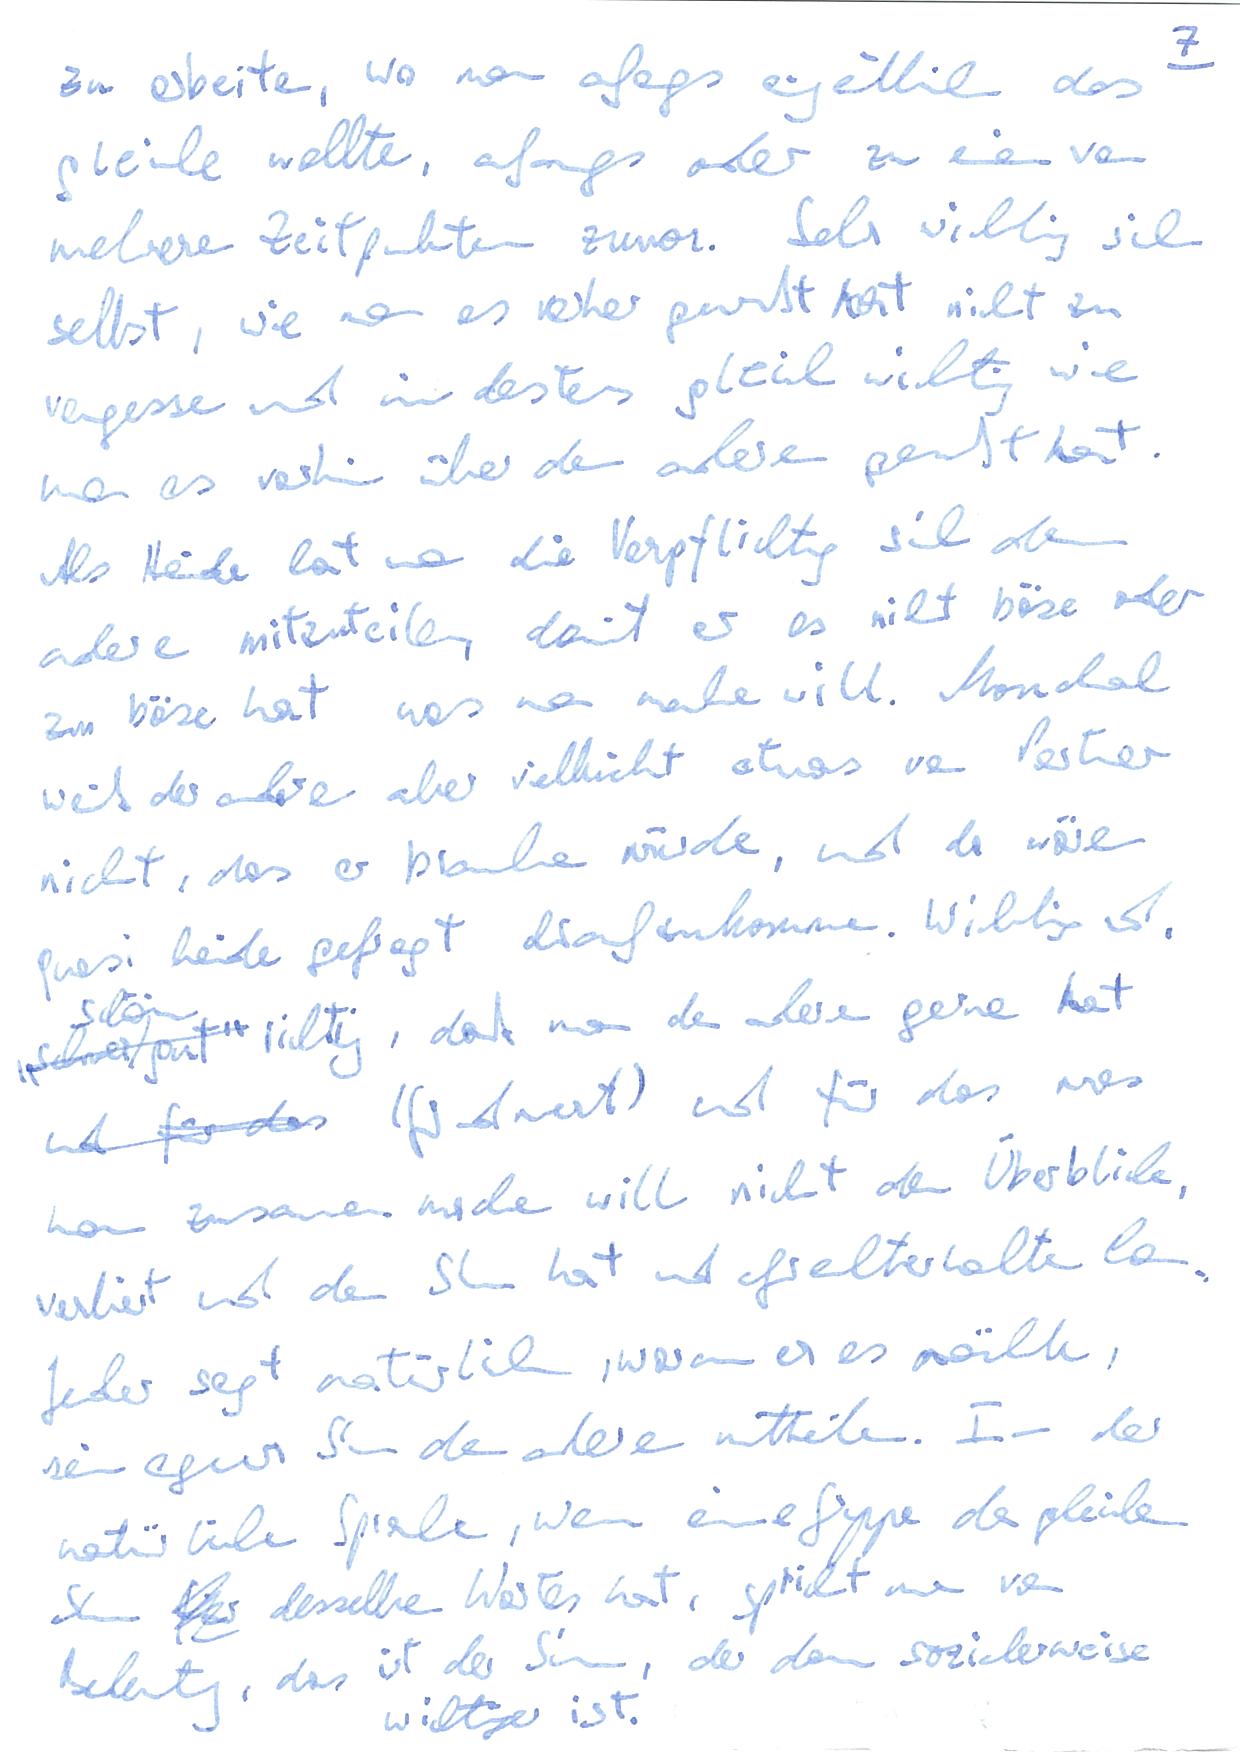 7
zu arbeiten, wo man anfangs eigentlich das
gleiche wollte, anfangs oder zu einem von
mehrere Zeitpunkten zuvor. Sehr wichtig sich
selbst, wie man es vorher gewußt hat nicht zu
vergessen und mindestens gleich wichtig wie
man es vorhin über den anderen gewußt hat.
Als hat man die Verpflichtung sich dem
anderen mitzuteilen, damit er es nicht böse oder
zu böse hat was man machen will. Manchmal
weiß der andere aber vielleicht etwas vom Partner
nicht, das er brauchen würde, und da wären
quasi beide gefragt draufzukommen. Wichtig ist,
schön
"schwer/gut" richtig, daß man den anderen gerne hat
und für das und für das was
man zusammen machen will nicht den Überblick,
verliert und den Sinn hat und aufrechterhalten kann.
Jeder sagt natürlich, warum er es möchte,
sein Sinn dem anderen mitteilen. In der
natürlichen Sprache, wenn eine Gruppe den gleichen
Sinn desselben Wortes hat, spricht man von
Bedeutung, das ist der Sinn, der dann sozialerweise
wichtiger ist.